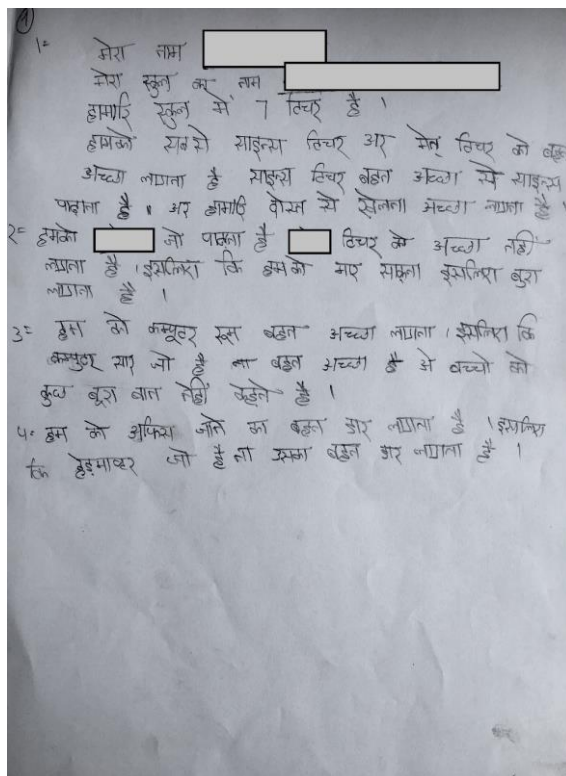 १
१= मेरा नाम
मेरा स्कुल का नाम
हामारि स्कुल में 7 टिचर है ।
हामको सबसे साइन्स टिचर अर मेत् टिचर को बहु
अच्छा लागता है साइन्स टिचर बहुत अच्छा से साइन्स
पाढ़ाता है । अर हामारि दोस्त से खेलना अच्छा लागता है ।
२= हमको जो पाढ़ता है टिचर के अच्छा नही
लागता है । इसलिए कि हमको मार इसलिए बुरा
लागता है ।
3= हम को कम्पुटर रूम बहुत अच्छा लागता । इसलिए कि
कम्पुटर सार जो है ना बहुत अच्छा है ओ बच्चो को
कुछ बूरा बात नही कहते है ।
५= हम को अफिस जाने का बहुत डार लागता है । इसलिए
कि हेड्माष्टर जो है ना उसका बहुत डार लागता है ।